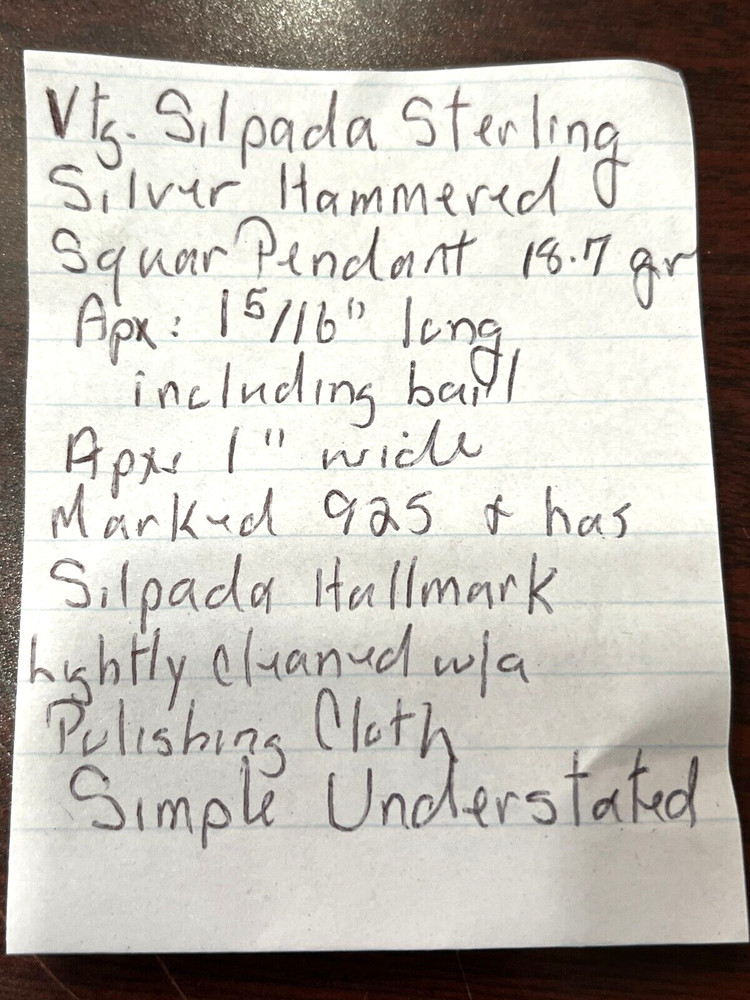 Vtg. Silpada Sterling
Silver Hammered
Squar Pendant 18.7 gr
Apx: 1 5/16" long
including bail
Apx: 1" wide
Marked 925 & has
Silpada Hallmark
Lightly Cleaned w/a
Polishing Cloth
Simple Understated